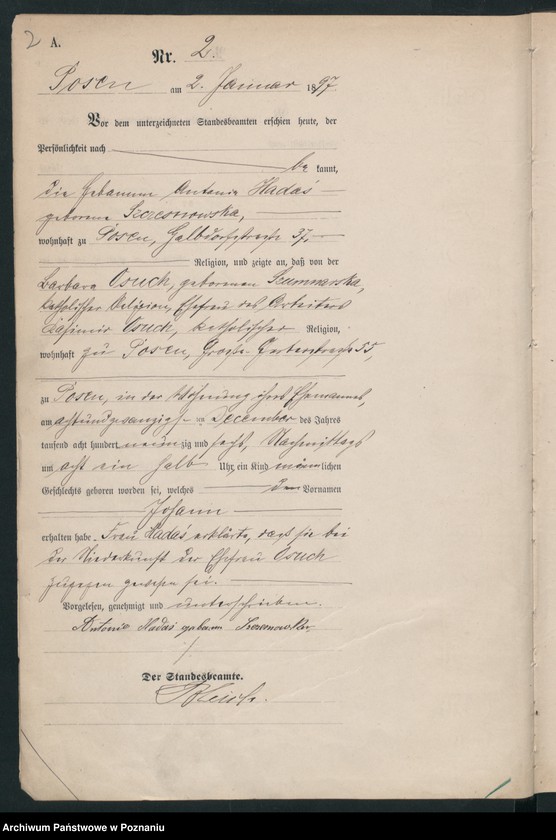 2 A.
Nr. 2.
Posen am 2. Januar 1897.
Vor dem unterzeichneten Standesbeamten erschien heute, der
Persönlichkeit nach
be kannt,
die Hebamme Antonia Hadaś
geborene Szczesnowska,
wohnhaft zu Posen, Halbdorfstraße 37,
Religion, und zeigte an, daß von der
Barbara Osuch, geborenen
katholischer Religion, Ehefrau des Arbeiters
Kasimir Osuch, katholischer Religion,
wohnhaft zu Posen, Große Gerberstraße 55,
zu Posen, in der Wohnung ihres Ehemannes,
am achtundzwanzigsten December des Jahres
tausend acht hundert neunzig und sechs, Nachmittags
um acht ein halb Uhr, ein Kind männlichen
Geschlechts geboren worden sei, welches den Vornamen
Johann
erhalten habe. Frau Hadaś erklärte, dass sie bei
der Niederkunft der Ehefrau Osuch
zugegen gewesen sei.
Vorgelesen, genehmigt und unterschrieben.
Antonie Hadaś geborene
Der Standesbeamte.
Archiwum Państwowe w Poznaniu